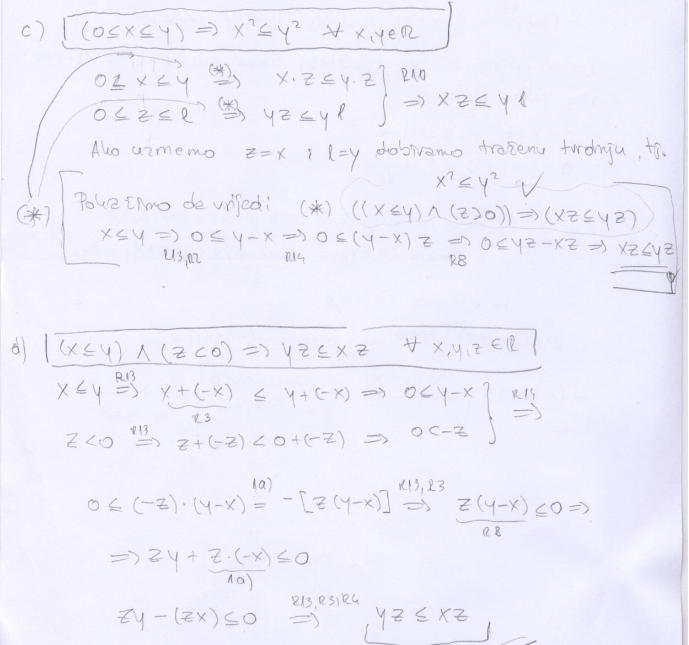 c) (0≤x≤y) ⇒ x²≤y² ∀ x,y∈ℝ
0≤x≤y (*)⇒ x·z≤y·z } R10
0≤z≤l (*)⇒ yz≤yl ⇒ xz≤yl
Ako uzmemo z=x i l=y dobivamo traženu tvrdnju, tj.
x²≤y² ✓
(*) Pokažimo da vrijedi (*) ((x≤y)∧(z>0))⇒(xz≤yz)
x≤y ⇒ 0≤y-x ⇒ 0≤(y-x)z ⇒ 0≤yz-xz ⇒ xz≤yz
R13,R2 R14 R8
d) (x≤y) ∧ (z<0) ⇒ yz≤xz ∀ x,y,z∈ℝ
x≤y R13⇒ x+(-x) ≤ y+(-x) ⇒ 0≤y-x } R14⇒
R3
z<0 R13⇒ z+(-z)<0+(-z) ⇒ 0<-z
0≤(-z)·(y-x) 1a)= -[z(y-x)] R13,R3⇒ z(y-x)≤0 ⇒
R8
⇒ zy+z·(-x)≤0
1a)
zy-(zx)≤0 R13,R3,R4⇒ yz≤xz